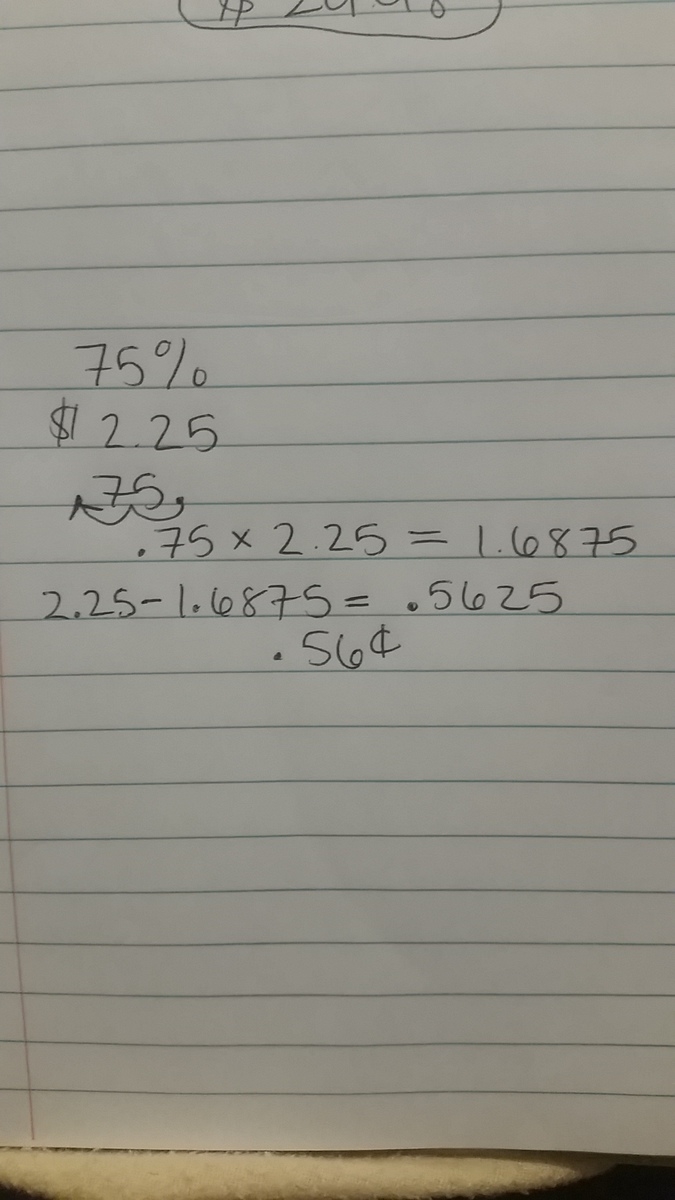 75%
$ 2.25
75.
.75 × 2.25 = 1.6875
2.25 - 1.6875 = .5625
.56¢